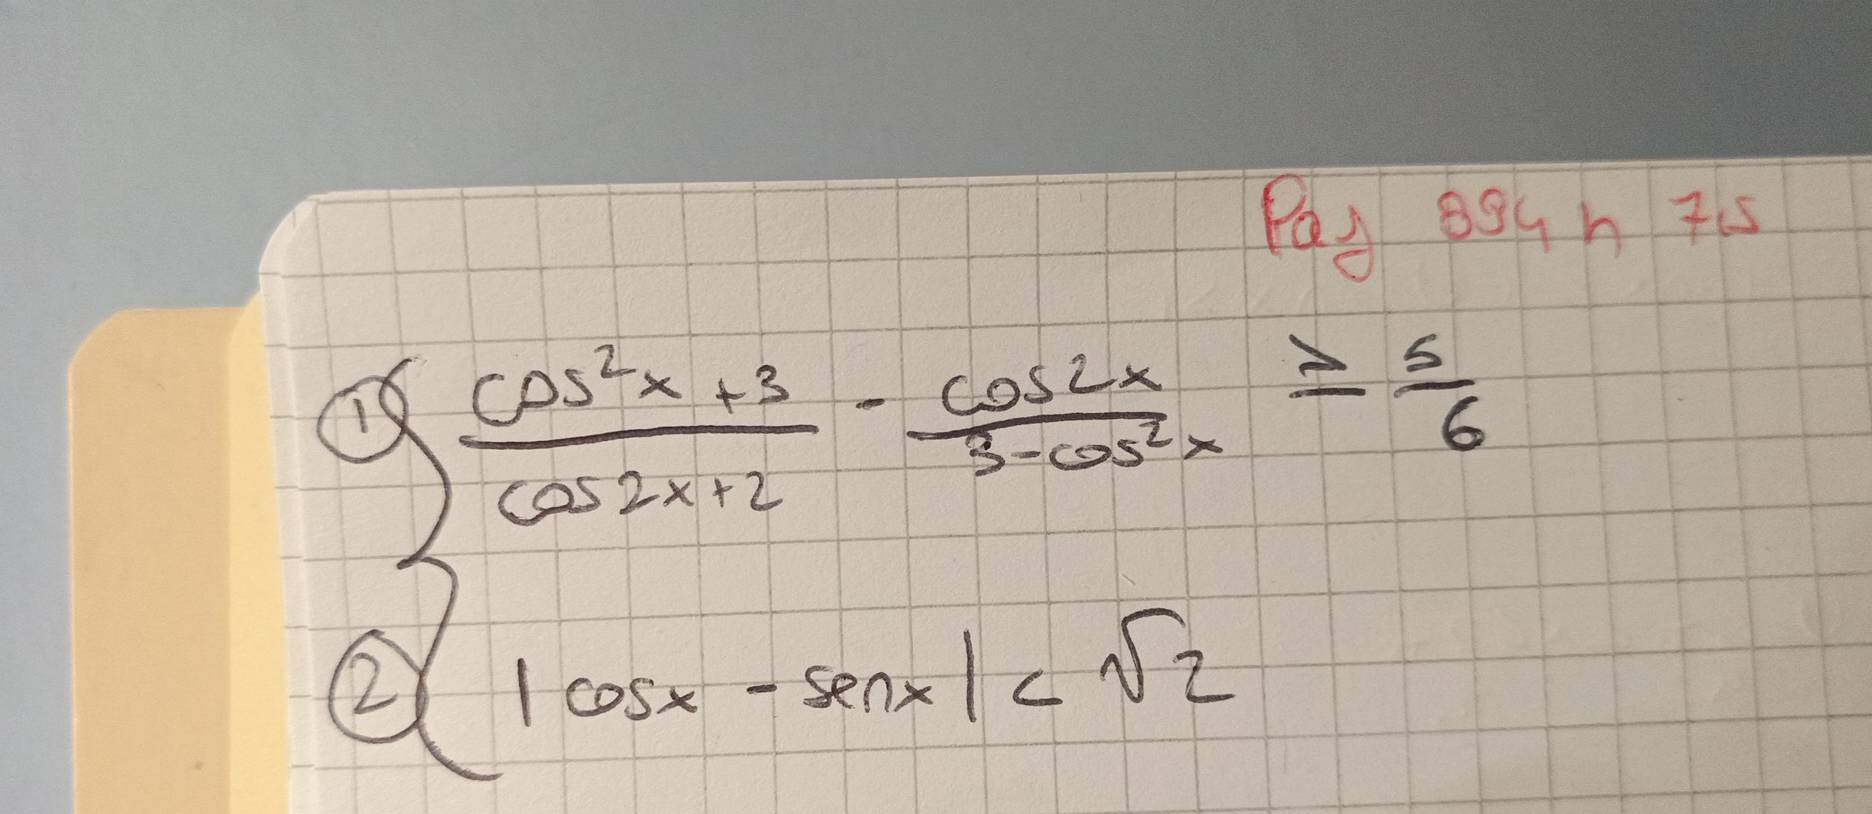 Pag 894 n 75
① { (cos²x + 3)/(cos2x + 2) - (cos2x)/(3 - cos²x) ≥ 5/6
② |cosx - senx| < √2